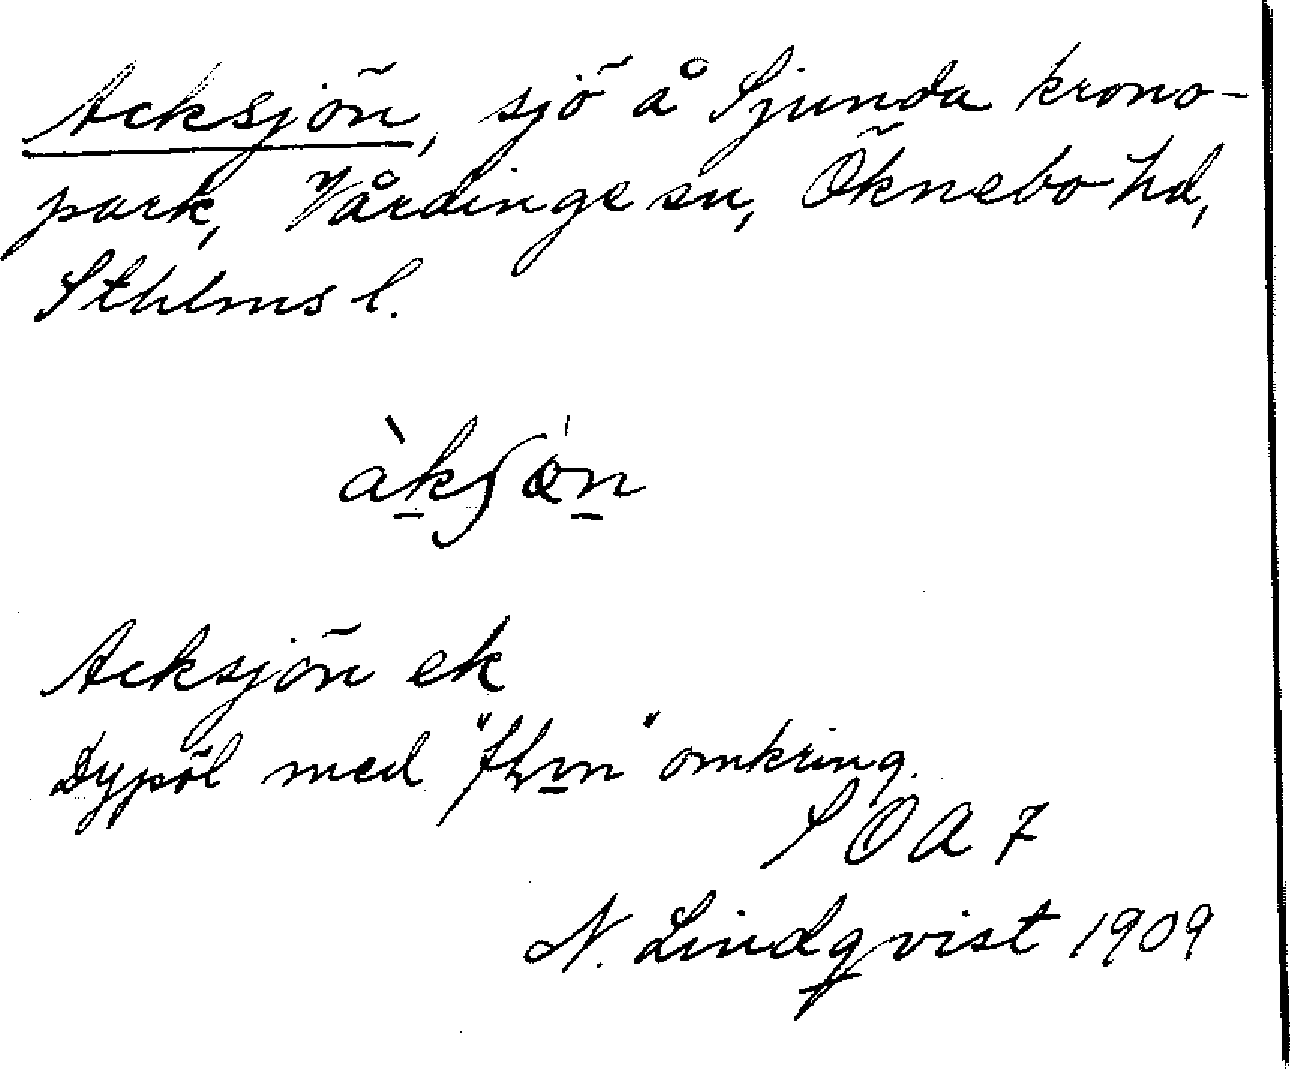 Acksjön, sjö å Sjunda krono-
park, Vårdinge sn, Öknebo hd,
Sthlms l.
àkʃøn
Acksjön ek
Dypöl med " " omkring.
SOÄ 7
N. Lindqvist 1909